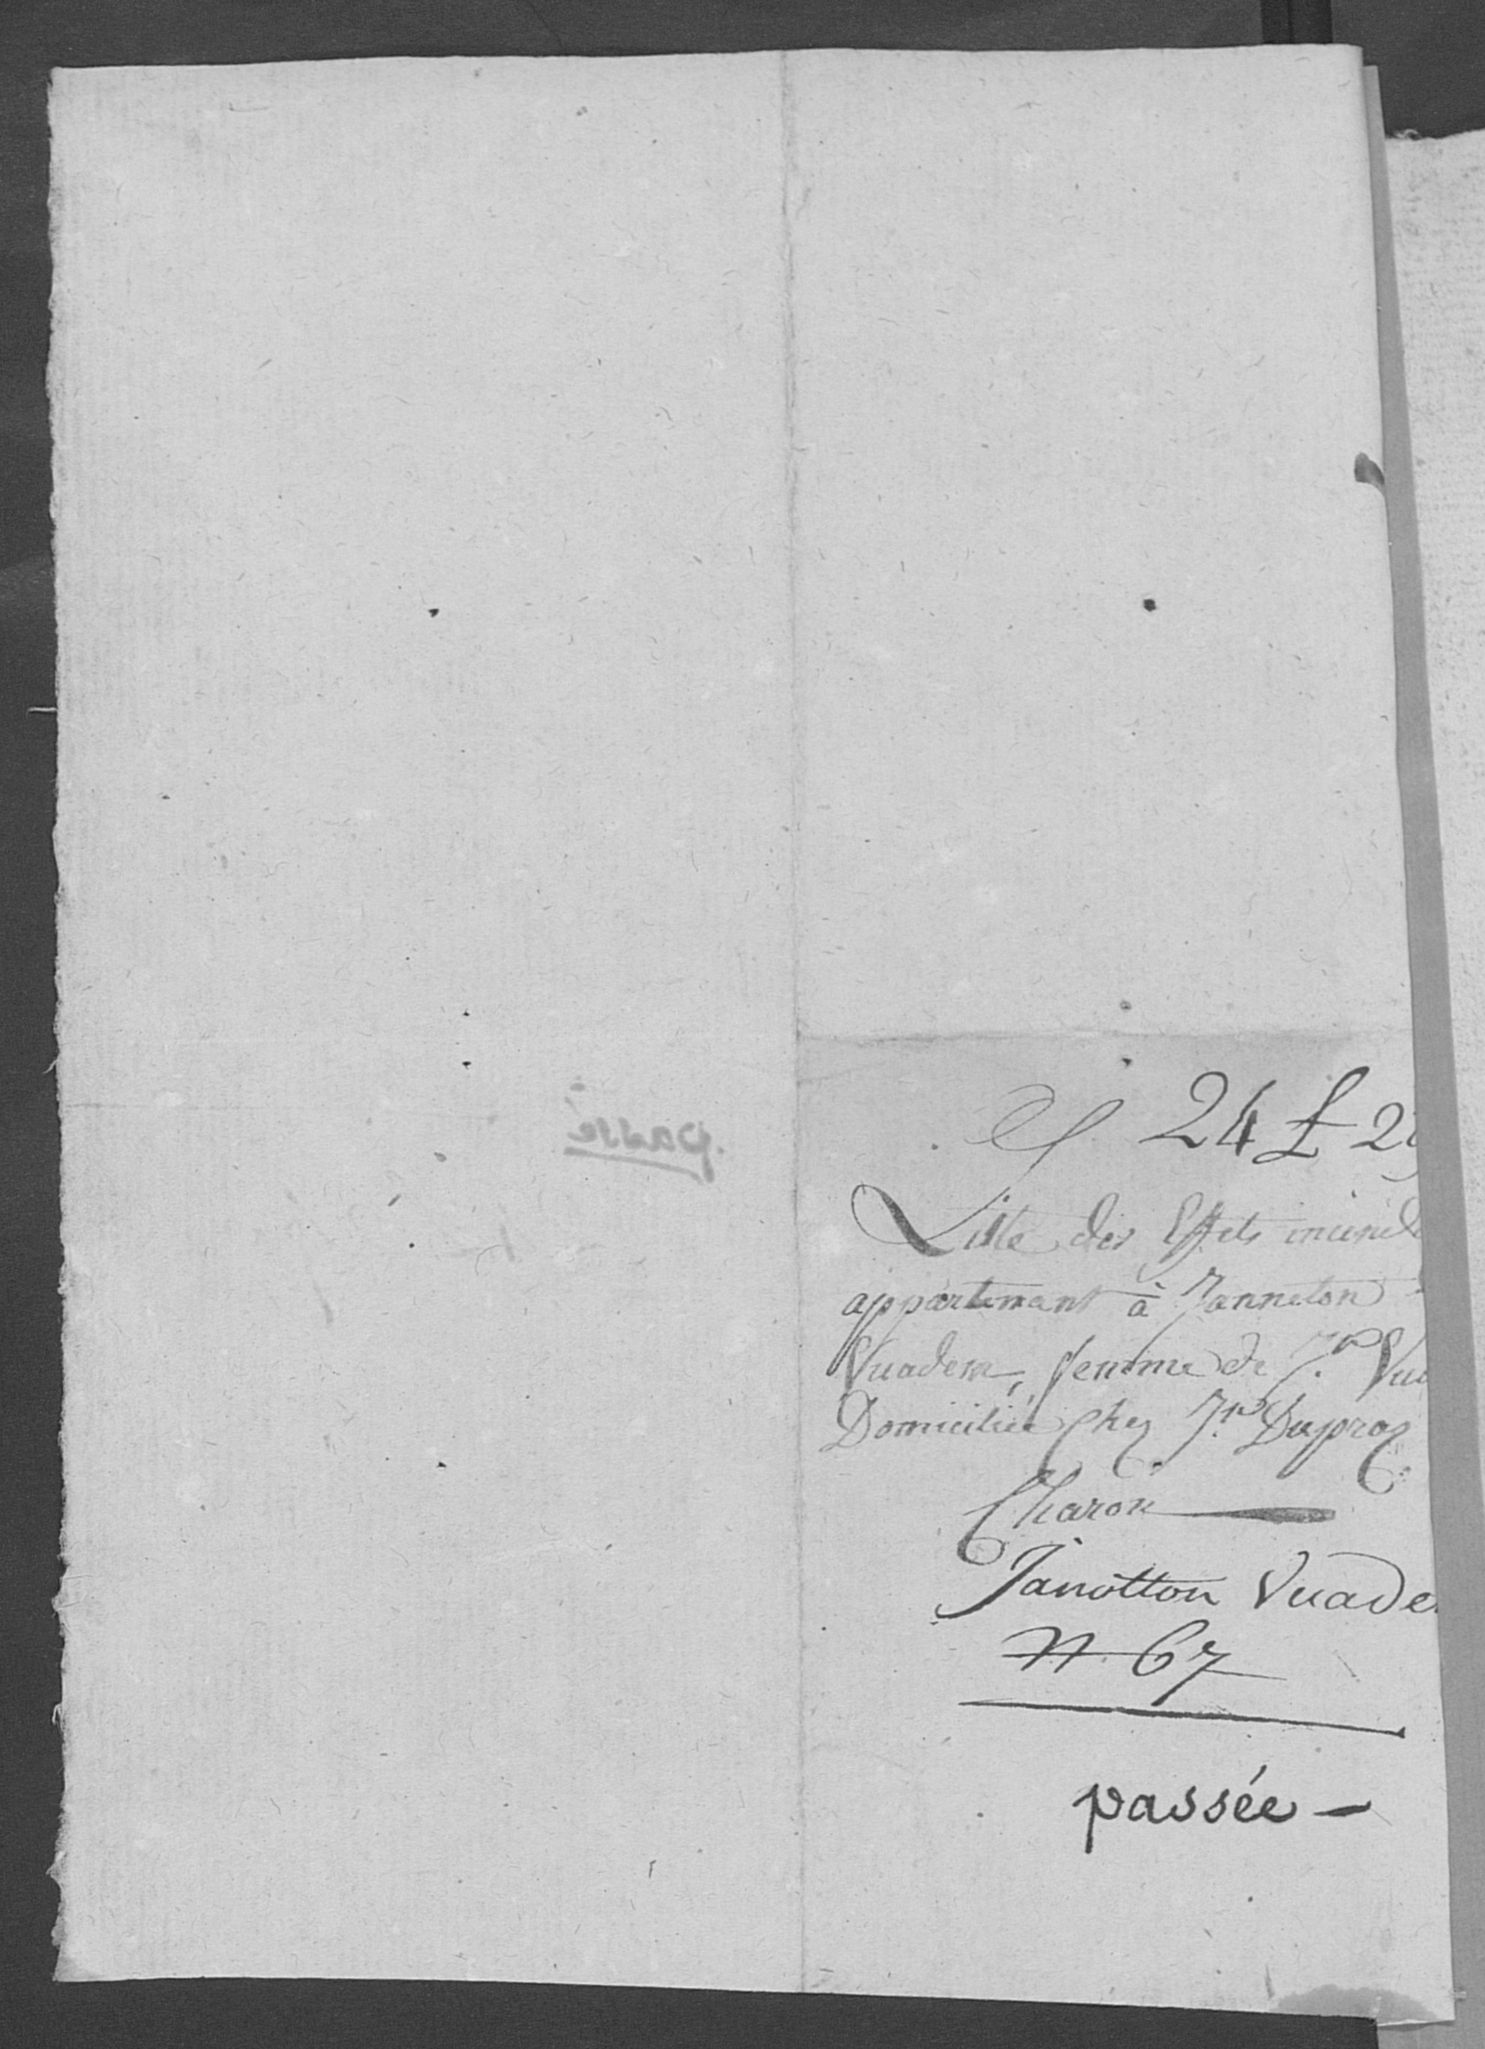 24 £ 29
Liste des Effets incendi
appartenant à Janneton
Vuadens, femme de J.n Vua
Domiciliée Chez J.n Duproz
Charon
Janotton Vuade
N. 67
passée –
passé